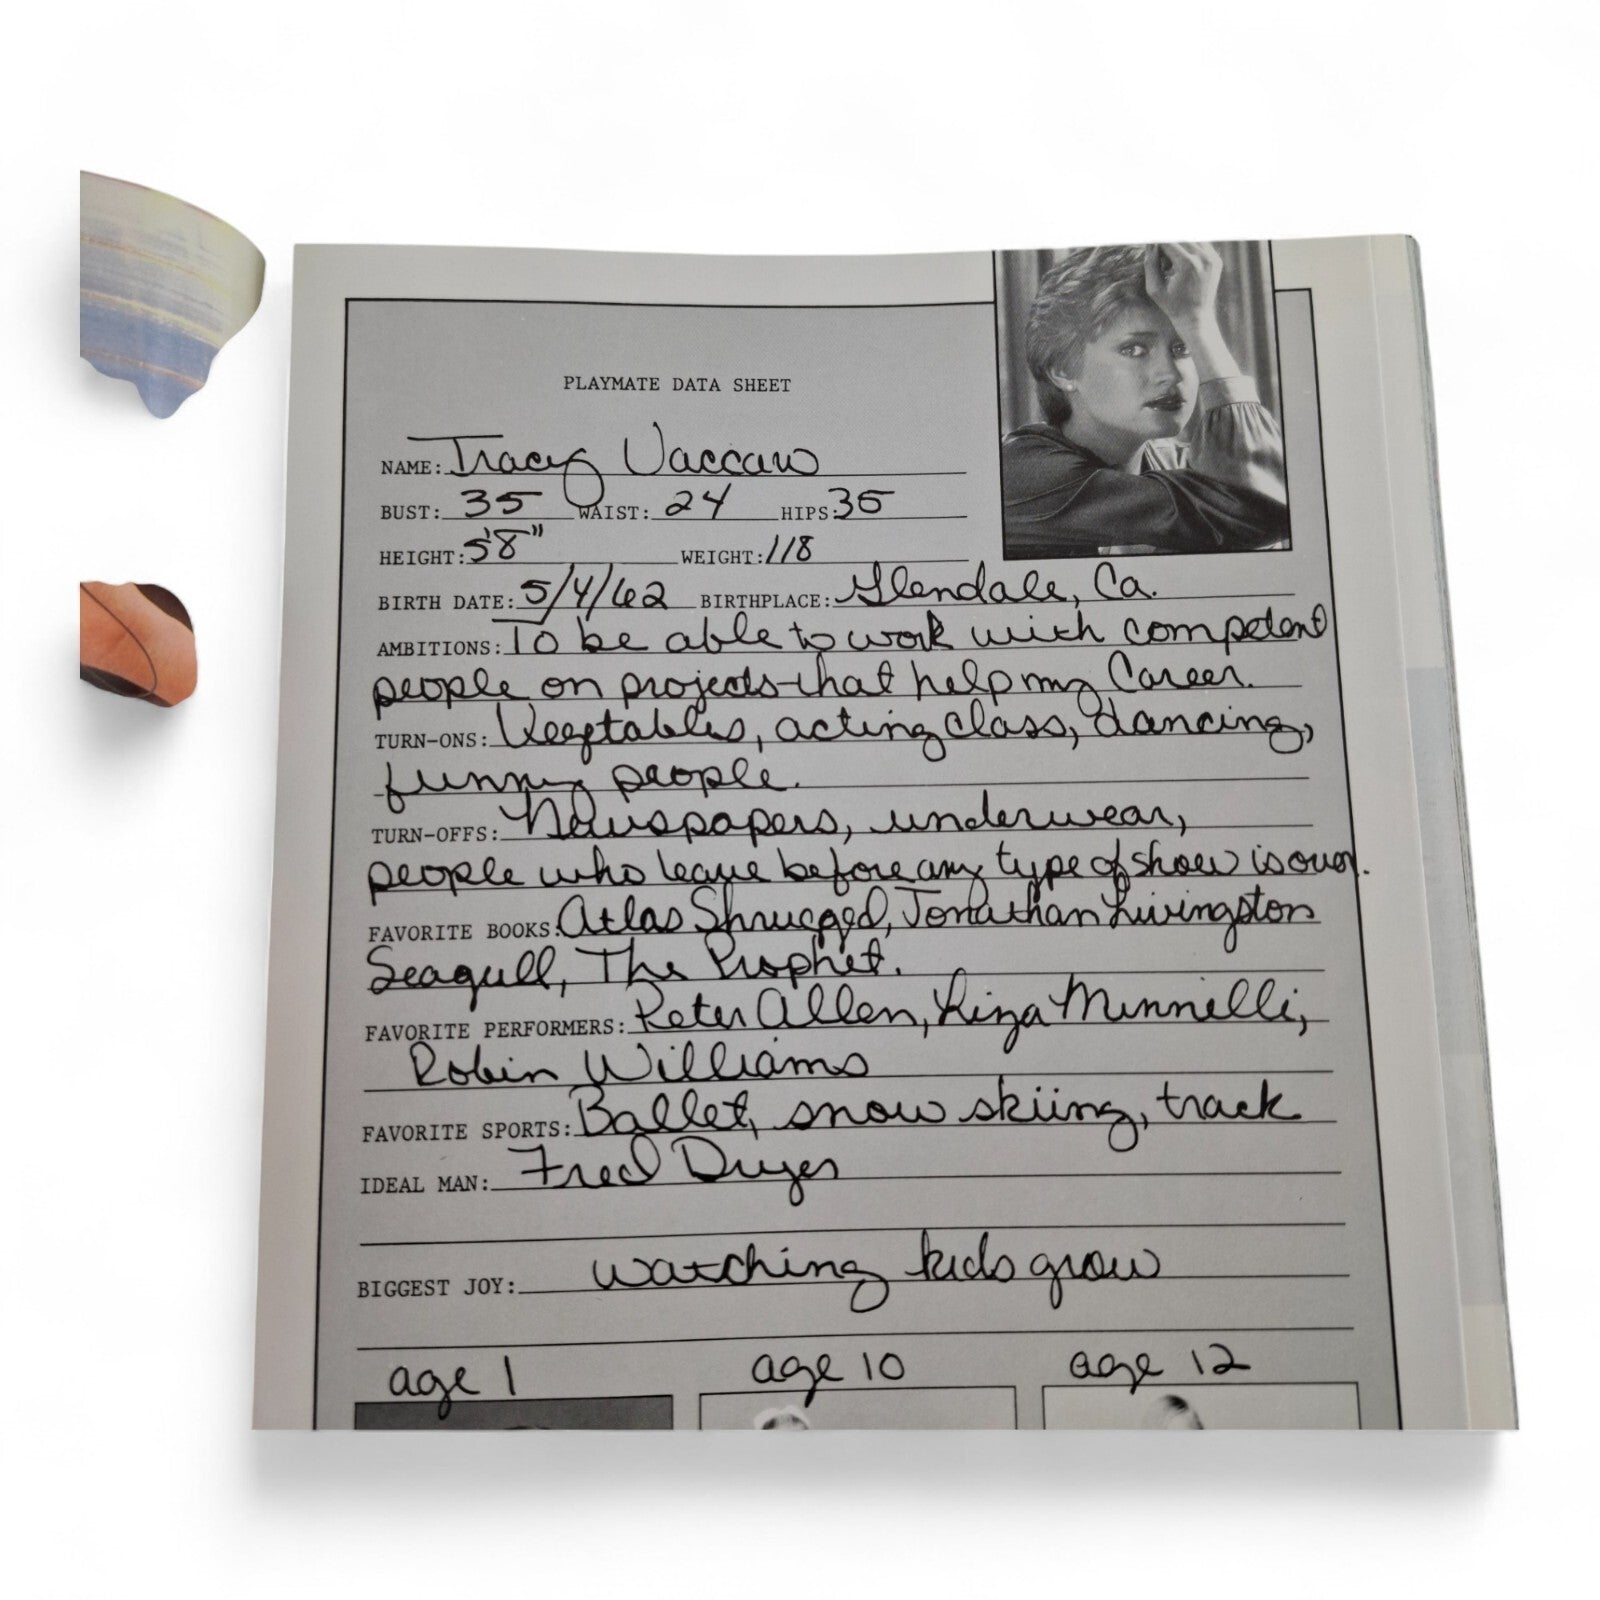 PLAYMATE DATA SHEET
NAME: Tracy Vaccaro
BUST: 35 WAIST: 24 HIPS: 35
HEIGHT: 5'8" WEIGHT: 118
BIRTH DATE: 5/4/62 BIRTHPLACE: Glendale, Ca.
AMBITIONS: To be able to work with competent
people on projects that help my Career.
TURN-ONS: Vegtables, acting class, dancing,
funny people.
TURN-OFFS: Newspapers, underwear,
people who leave before any type of show is over.
FAVORITE BOOKS: Atlas Shrugged, Jonathan Livingston
Seagull, The Prophet.
FAVORITE PERFORMERS: Peter Allen, Liza Minnelli,
Robin Williams
FAVORITE SPORTS: Ballet, snow skiing, track
IDEAL MAN: Fred Dryer
BIGGEST JOY: watching kids grow
age 1 age 10 age 12